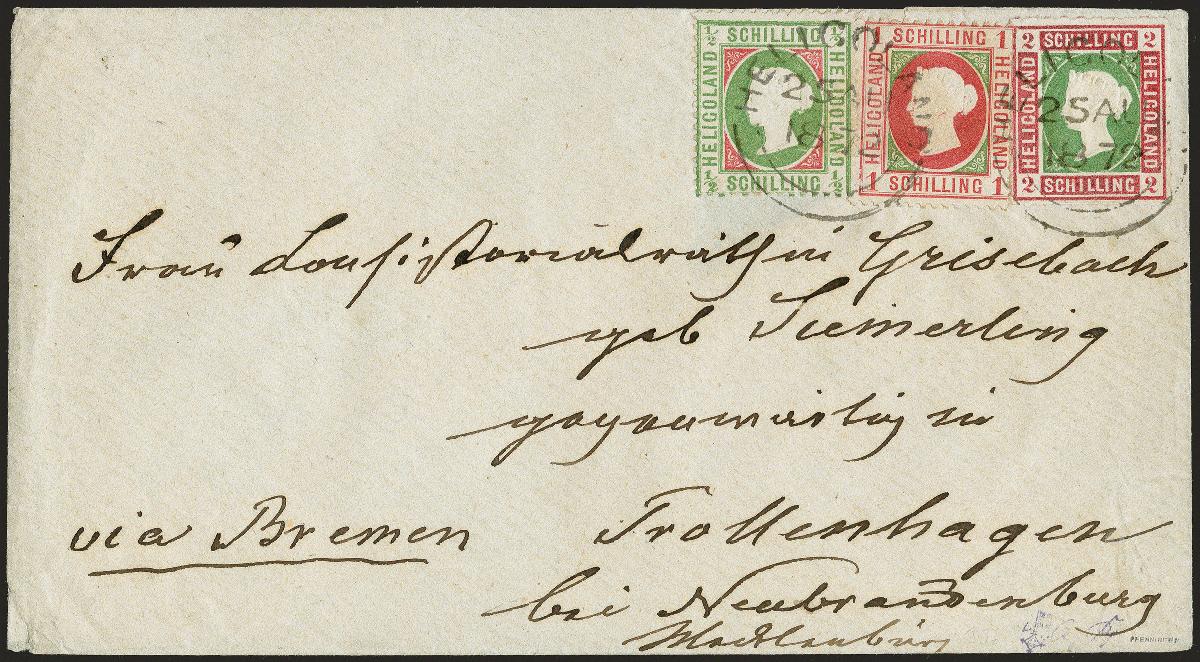 ½ SCHILLING ½
HELIGOLAND
HELIGOLAND
½ SCHILLING ½
1 SCHILLING 1
HELIGOLAND
HELIGOLAND
1 SCHILLING 1
2 SCHILLING 2
HELIGOLAND
HELIGOLAND
2 SCHILLING 2
HELIGOLAND
2SAU
1872
HELIGOLAND
2SAU
1872
Frau Consistorialräthin Grisebach
geb Siemerling
gegenwärtig in
via Bremen
Trollenhagen
bei Neubrandenburg
Mecklenburg
PFENNINGER